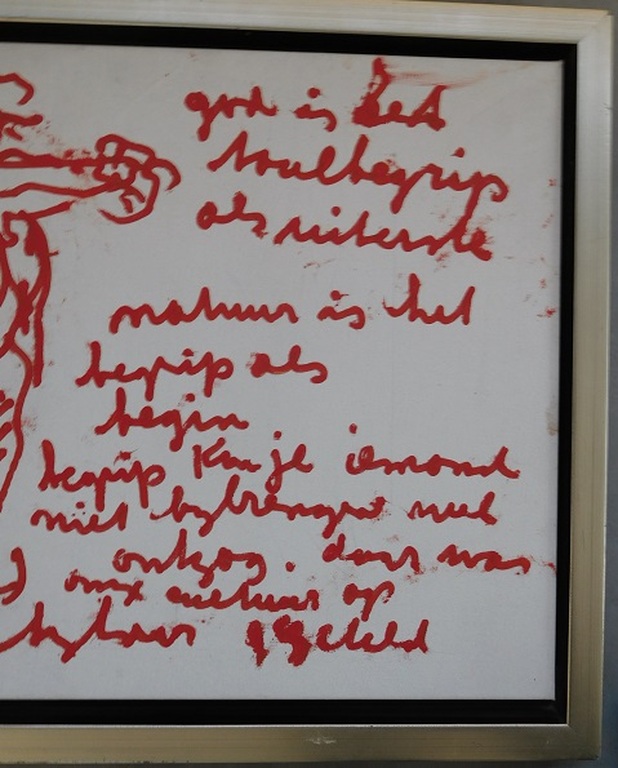 god is het
taalbegrip
als uiterste
natuur is het
begrip als
begin
begrip kun je iemand
niet bybrengen wel
daar was
onze cultuur op
gesteld